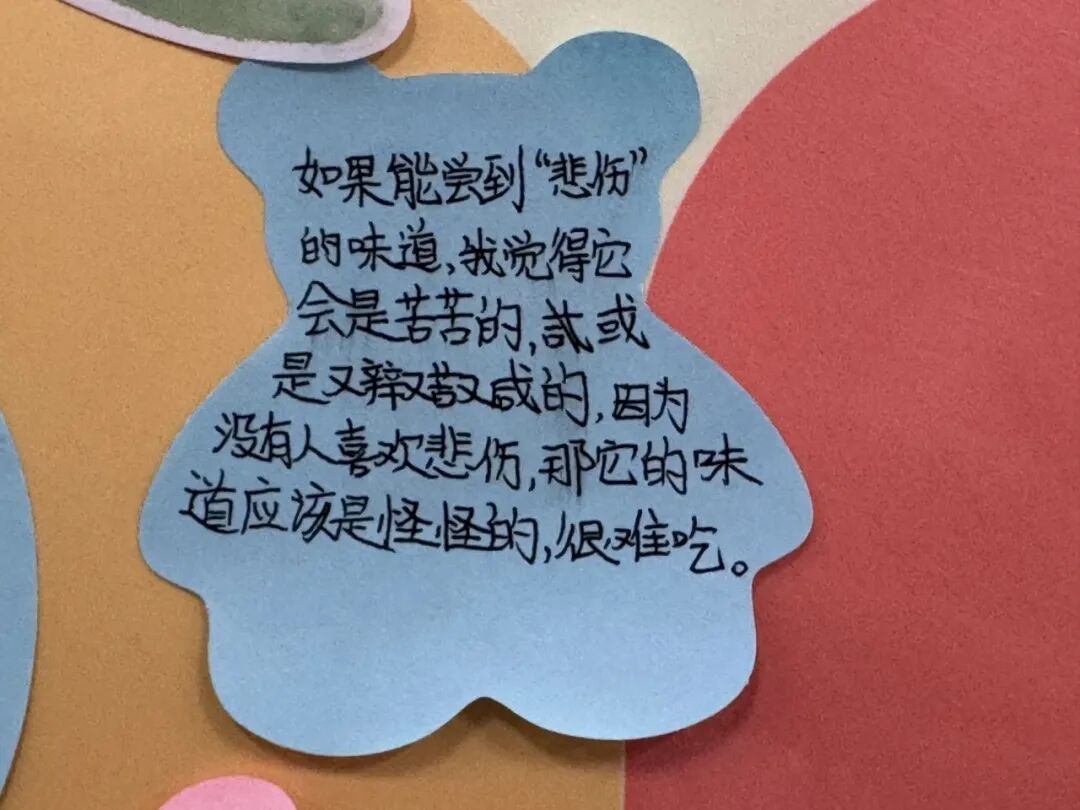 如果能尝到“悲伤”
的味道,我觉得它
会是苦苦的,或
是又辣又咸的,因为
没有人喜欢悲伤,那它的味
道应该是怪怪的,很难吃。